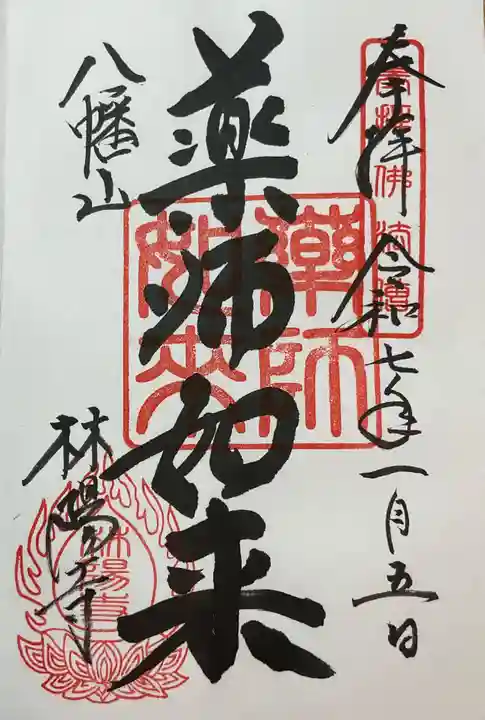 奉拝 令和七年一月五日
薬師如来
八幡山
林陽寺
薬師如来
林陽寺